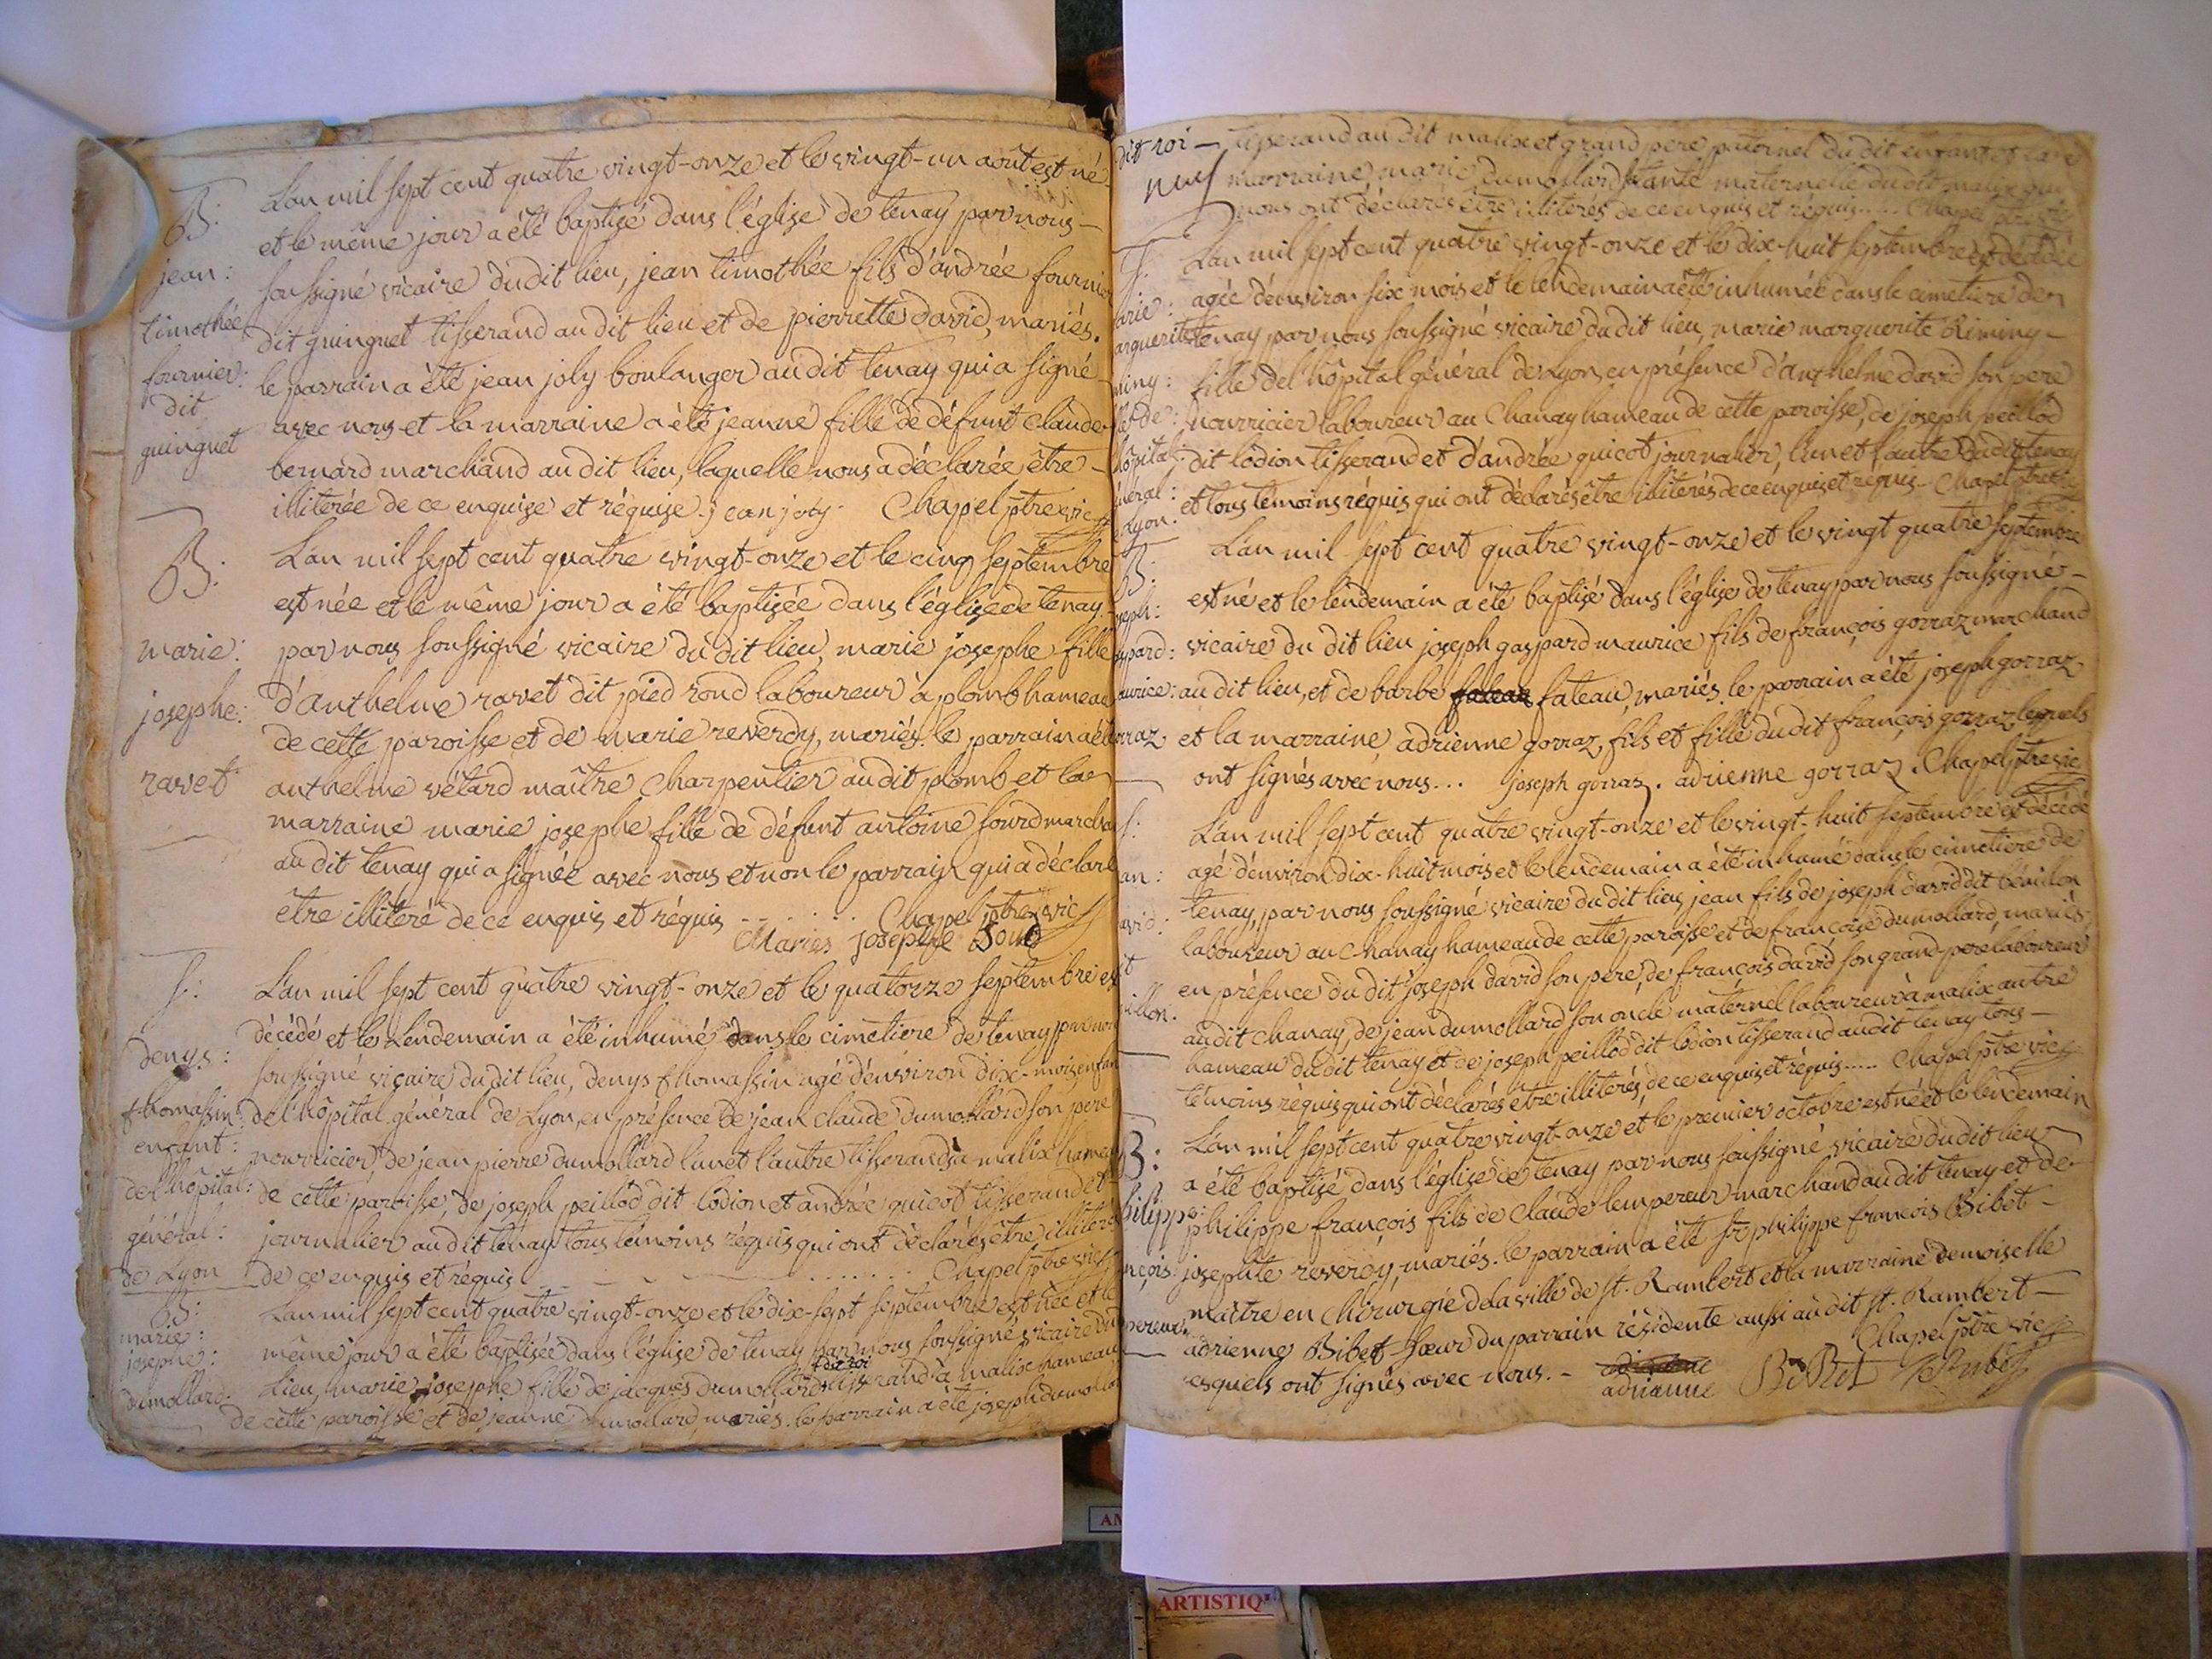 B:
jean:
timothée
fournier:
dit
guinguet
L'an mil sept cent quatre vingt-onze et le vingt-un aout est né
et le même jour a été baptisé dans l'église de tenay par nous —
soussigné vicaire du dit lieu, jean timothée fils d'andrée fournier
dit guinguet tisserand au dit lieu et de pierrette david, mariés.
le parrain a été jean joly boulanger au dit tenay qui a signé
avec nous et la marraine a été jeanne fille de défunt claude
bernard marchand au dit lieu, laquelle nous a déclarée être —
illiterée de ce enquise et réquise. jean joly. Chapel ptre vic
B:
marie:
josephe:
ravet
L'an mil sept cent quatre vingt-onze et le cinq septembre
est née et le même jour a été baptisée dans l'église de tenay
par nous soussigné vicaire du dit lieu, marie josephe fille
d'anthelme ravet dit pied rond laboureur à plomb hameau
de cette paroisse et de marie reverdy, mariés. le parrain a été
anthelme vétard maître charpentier au dit plomb et la
marraine marie josephe fille de défunt antoine sourd marcha
au dit tenay qui a signée avec nous et non le parrain qui a déclaré
être illiteré de ce enquis et réquis ........ Chapel ptre vic
Maries josephe Sourd
S:
denys:
thomassin:
enfant:
de l'hôpital:
général:
de Lyon
L'an mil sept cent quatre vingt-onze et le quatorze septembre est
décédé et le lendemain a été inhumé dans le cimetiere de tenay par nous
soussigné vicaire du dit lieu, denys thomassin agé d'environ dix-mois enfan
de l'hôpital général de Lyon, en présence de jean claude dumollard son pere
nourricier, de jean pierre dumollard l'un et l'autre tisserands à malix hameau
de cette paroisse, de joseph peillod dit lodion et andrée quicot tisserand et
journalier au dit tenay tous témoins réquis qui ont déclarés être illiterés
de ce enquis et réquis ........ Chapel ptre vic
B:
marie:
josephe:
dumollard:
L'an mil sept cent quatre vingt-onze et le dix-sept septembre est née et le
même jour a été baptisée dans l'église de tenay par nous soussigné vicaire du
dit roi
lieu, marie josephe fille de jacques dumollard tisserand à malix hameau
de cette paroisse et de jeanne dumollard, mariés. le parrain a été joseph dumollard
dit roi — tisserand au dit malix et grand pere paternel du dit enfant et la
marraine marie dumollard tante maternelle du dit malix qui
nous ont déclarés être illiterés de ce enquis et réquis..... Chapel ptre vic
S:
arie:
arguerite
miny:
lle de:
hôpital:
néral:
Lyon.
L'an mil sept cent quatre vingt-onze et le dix-huit septembre est décédée
agée d'environ six mois et le lendemain a été inhumée dans le cimetiere de
tenay par nous soussigné vicaire du dit lieu, marie marguerite Riminy —
fille del hôpital général de Lyon, en présence d'anthelme david son pere
nourricier laboureur au Chanay hameau de cette paroisse, de joseph peillod
dit lodion tisserand et d'andrée quicot journalier, l'un et l'autre du dit tenay
et tous temoins réquis qui ont déclarés être illiterés de ce enquis et réquis — Chapel ptre vic
B:
oseph:
aspard:
aurice:
rraz
L'an mil sept cent quatre vingt-onze et le vingt quatre septembre
est né et le lendemain a été baptisé dans l'église de tenay par nous soussigné —
vicaire du dit lieu joseph gaspard maurice fils de françois gorraz marchand
au dit lieu, et de barbe fateau, mariés. le parrain a été joseph gorraz
et la marraine adrienne gorraz, fils et fille du dit françois gorraz, lesquels
ont signés avec nous... joseph gorraz. adrienne gorraz. Chapel ptre vic
S:
an:
avid:
it
illon.
L'an mil sept cent quatre vingt-onze et le vingt-huit septembre est décédé
agé d'environ dix-huit mois et le lendemain a été inhumé dans le cimetiere de
tenay, par nous soussigné vicaire du dit lieu, jean fils de joseph david dit
laboureur au Chanay hameau de cette paroisse et de françoise dumollard, mariés.
en présence du dit joseph david son pere, de françois david son grand-pere laboureur
au dit chanay, de jean dumollard son oncle maternel laboureur à malix autre
hameau du dit tenay et de joseph peillod dit lodion tisserand au dit tenay tous —
témoins réquis qui ont déclarés être illiterés, de ce enquis et réquis..... Chapel ptre vic
B:
hilippe:
nçois:
pereur
L'an mil sept cent quatre vingt-onze et le premier octobre est né et le lendemain
a été baptisé dans l'église de tenay par nous soussigné vicaire du dit lieu
philippe françois fils de claude lempereur marchand au dit tenay et de
josephte reverdy, mariés. le parrain a été sr philippe françois Bibet —
maitre en chirurgie de la ville de st. Rambert et la marraine demoiselle
adrienne Bibet sœur du parrain résidente aussi au dit st. Rambert —
esquels ont signés avec nous. — Chapel ptre vic
adrianne BiBet
ARTISTIQ